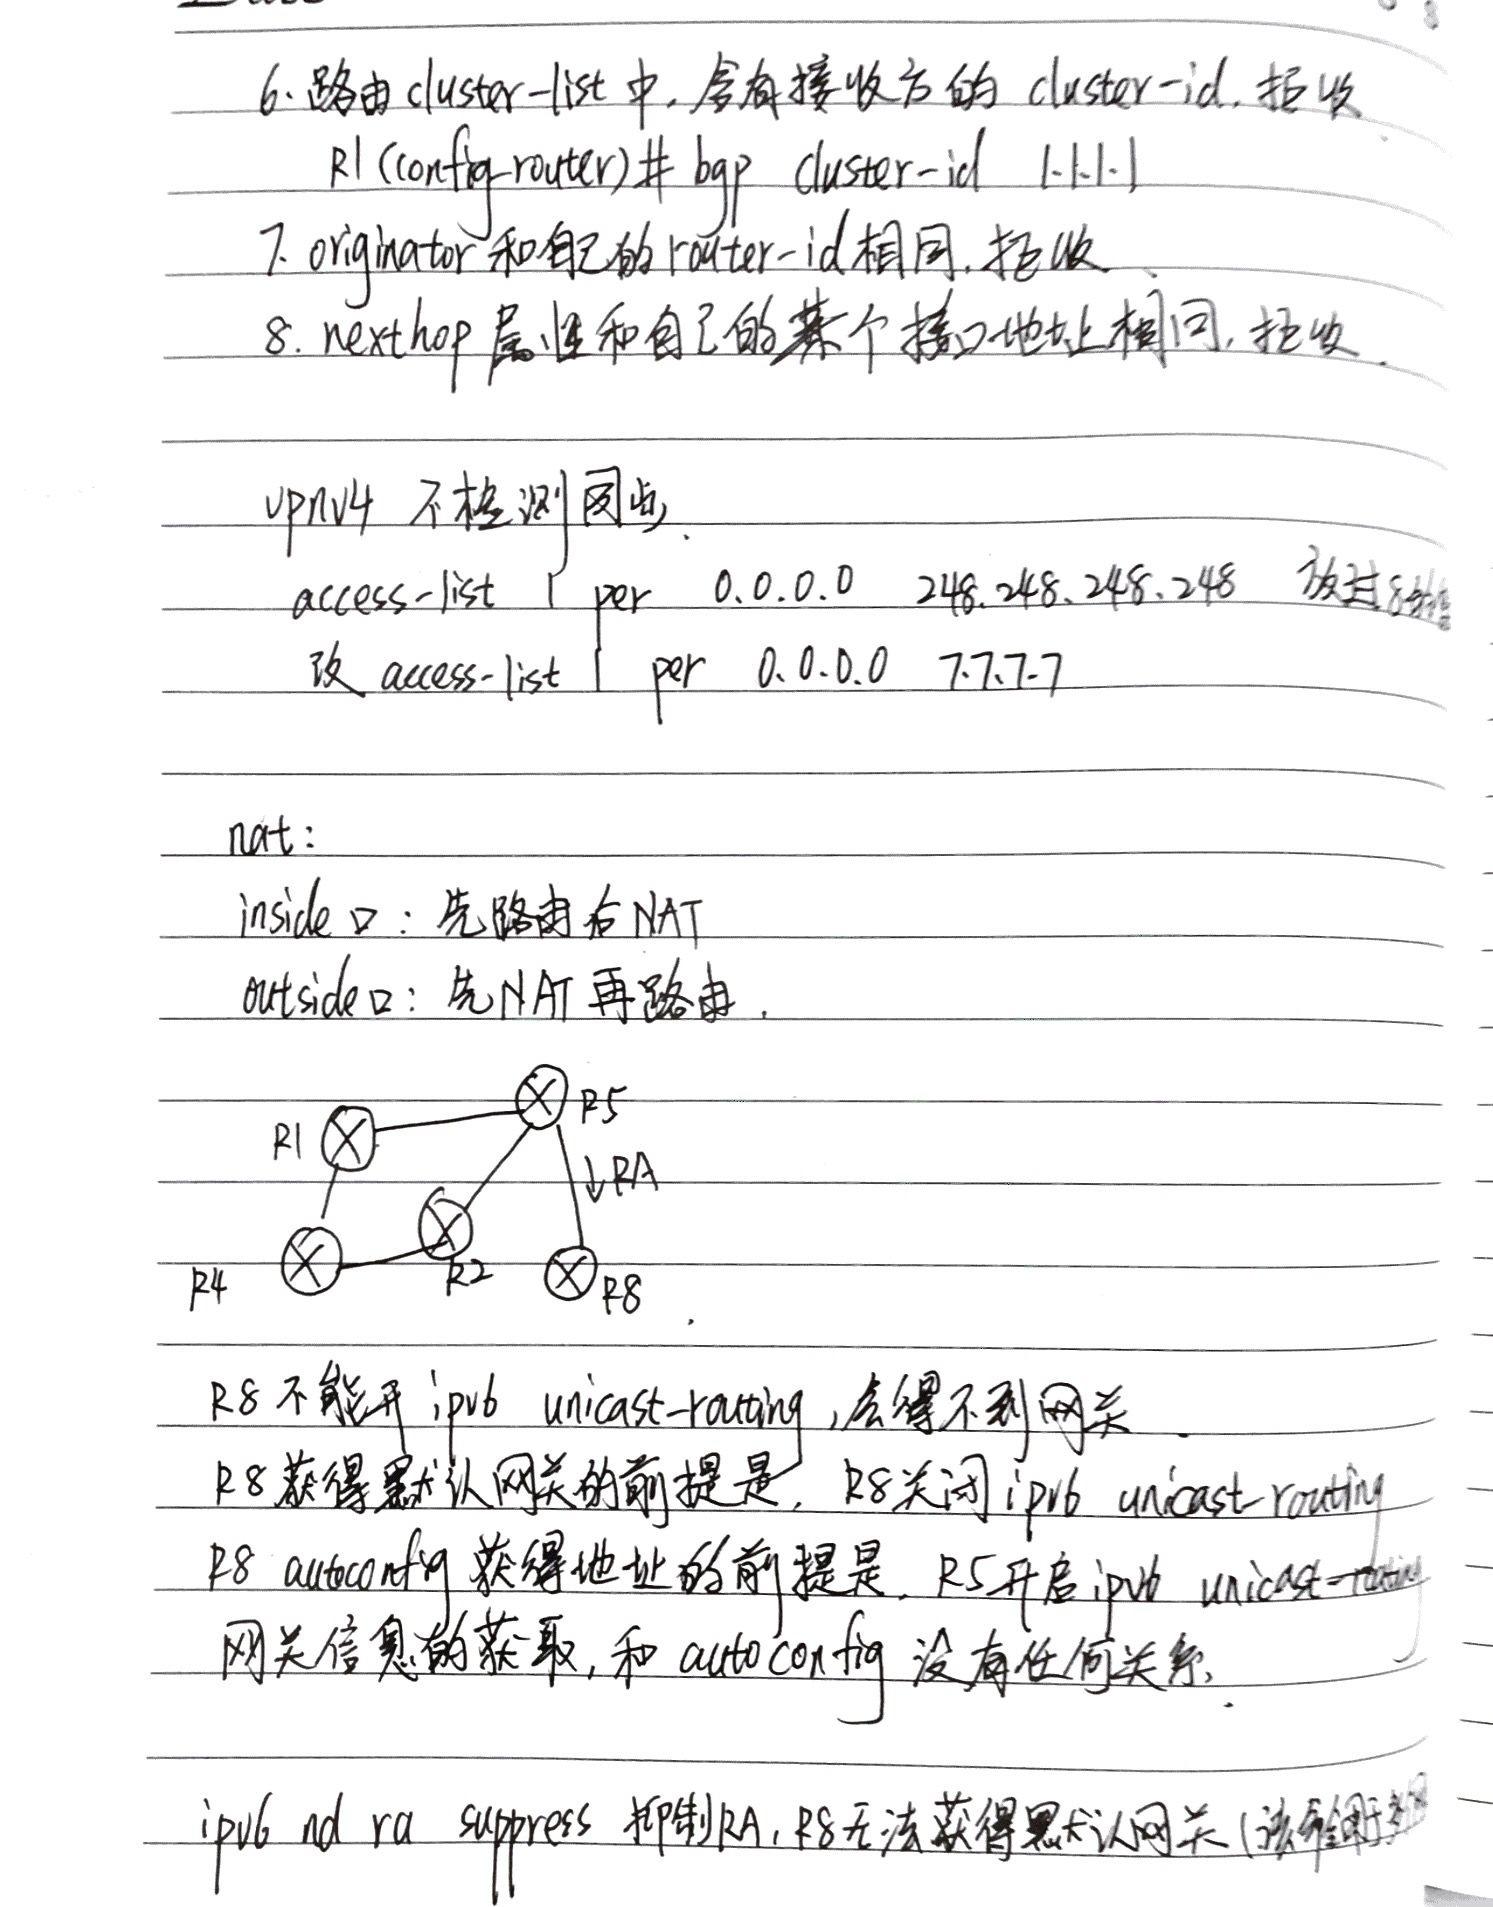 6. 路由cluster-list中,含有接收方的 cluster-id, 拒收
R1(config-router)# bgp cluster-id 1.1.1.1
7. originator和自己的router-id相同,拒收
8. nexthop属性和自己的某个接口地址相同,拒收.
vpnv4 不检测网点.
access-list 1 per 0.0.0.0 248.248.248.248 放过8
改 access-list 1 per 0.0.0.0 7.7.7.7
nat:
inside口: 先路由后NAT
outside口: 先NAT再路由.
R5
R1
↓RA
R4
R2
R8
R8不能开ipv6 unicast-routing,会得不到网关.
R8获得默认网关的前提是, R8关闭ipv6 unicast-routing
R8 autoconfig获得地址的前提是, R5开启ipv6 unicast-routing
网关信息的获取,和autoconfig没有任何关系.
ipv6 nd ra suppress 抑制RA, R8无法获得默认网关(该命令用于